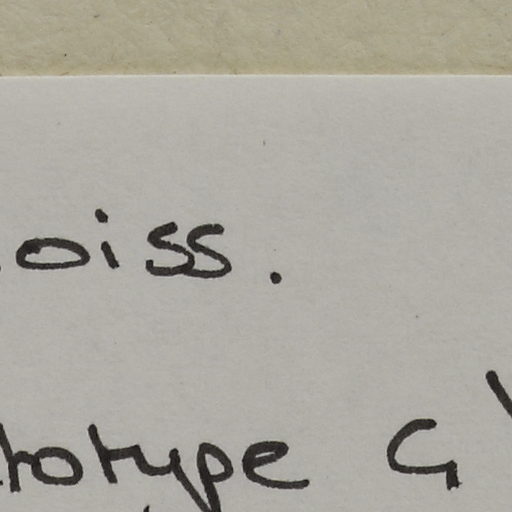 oiss.
totype G